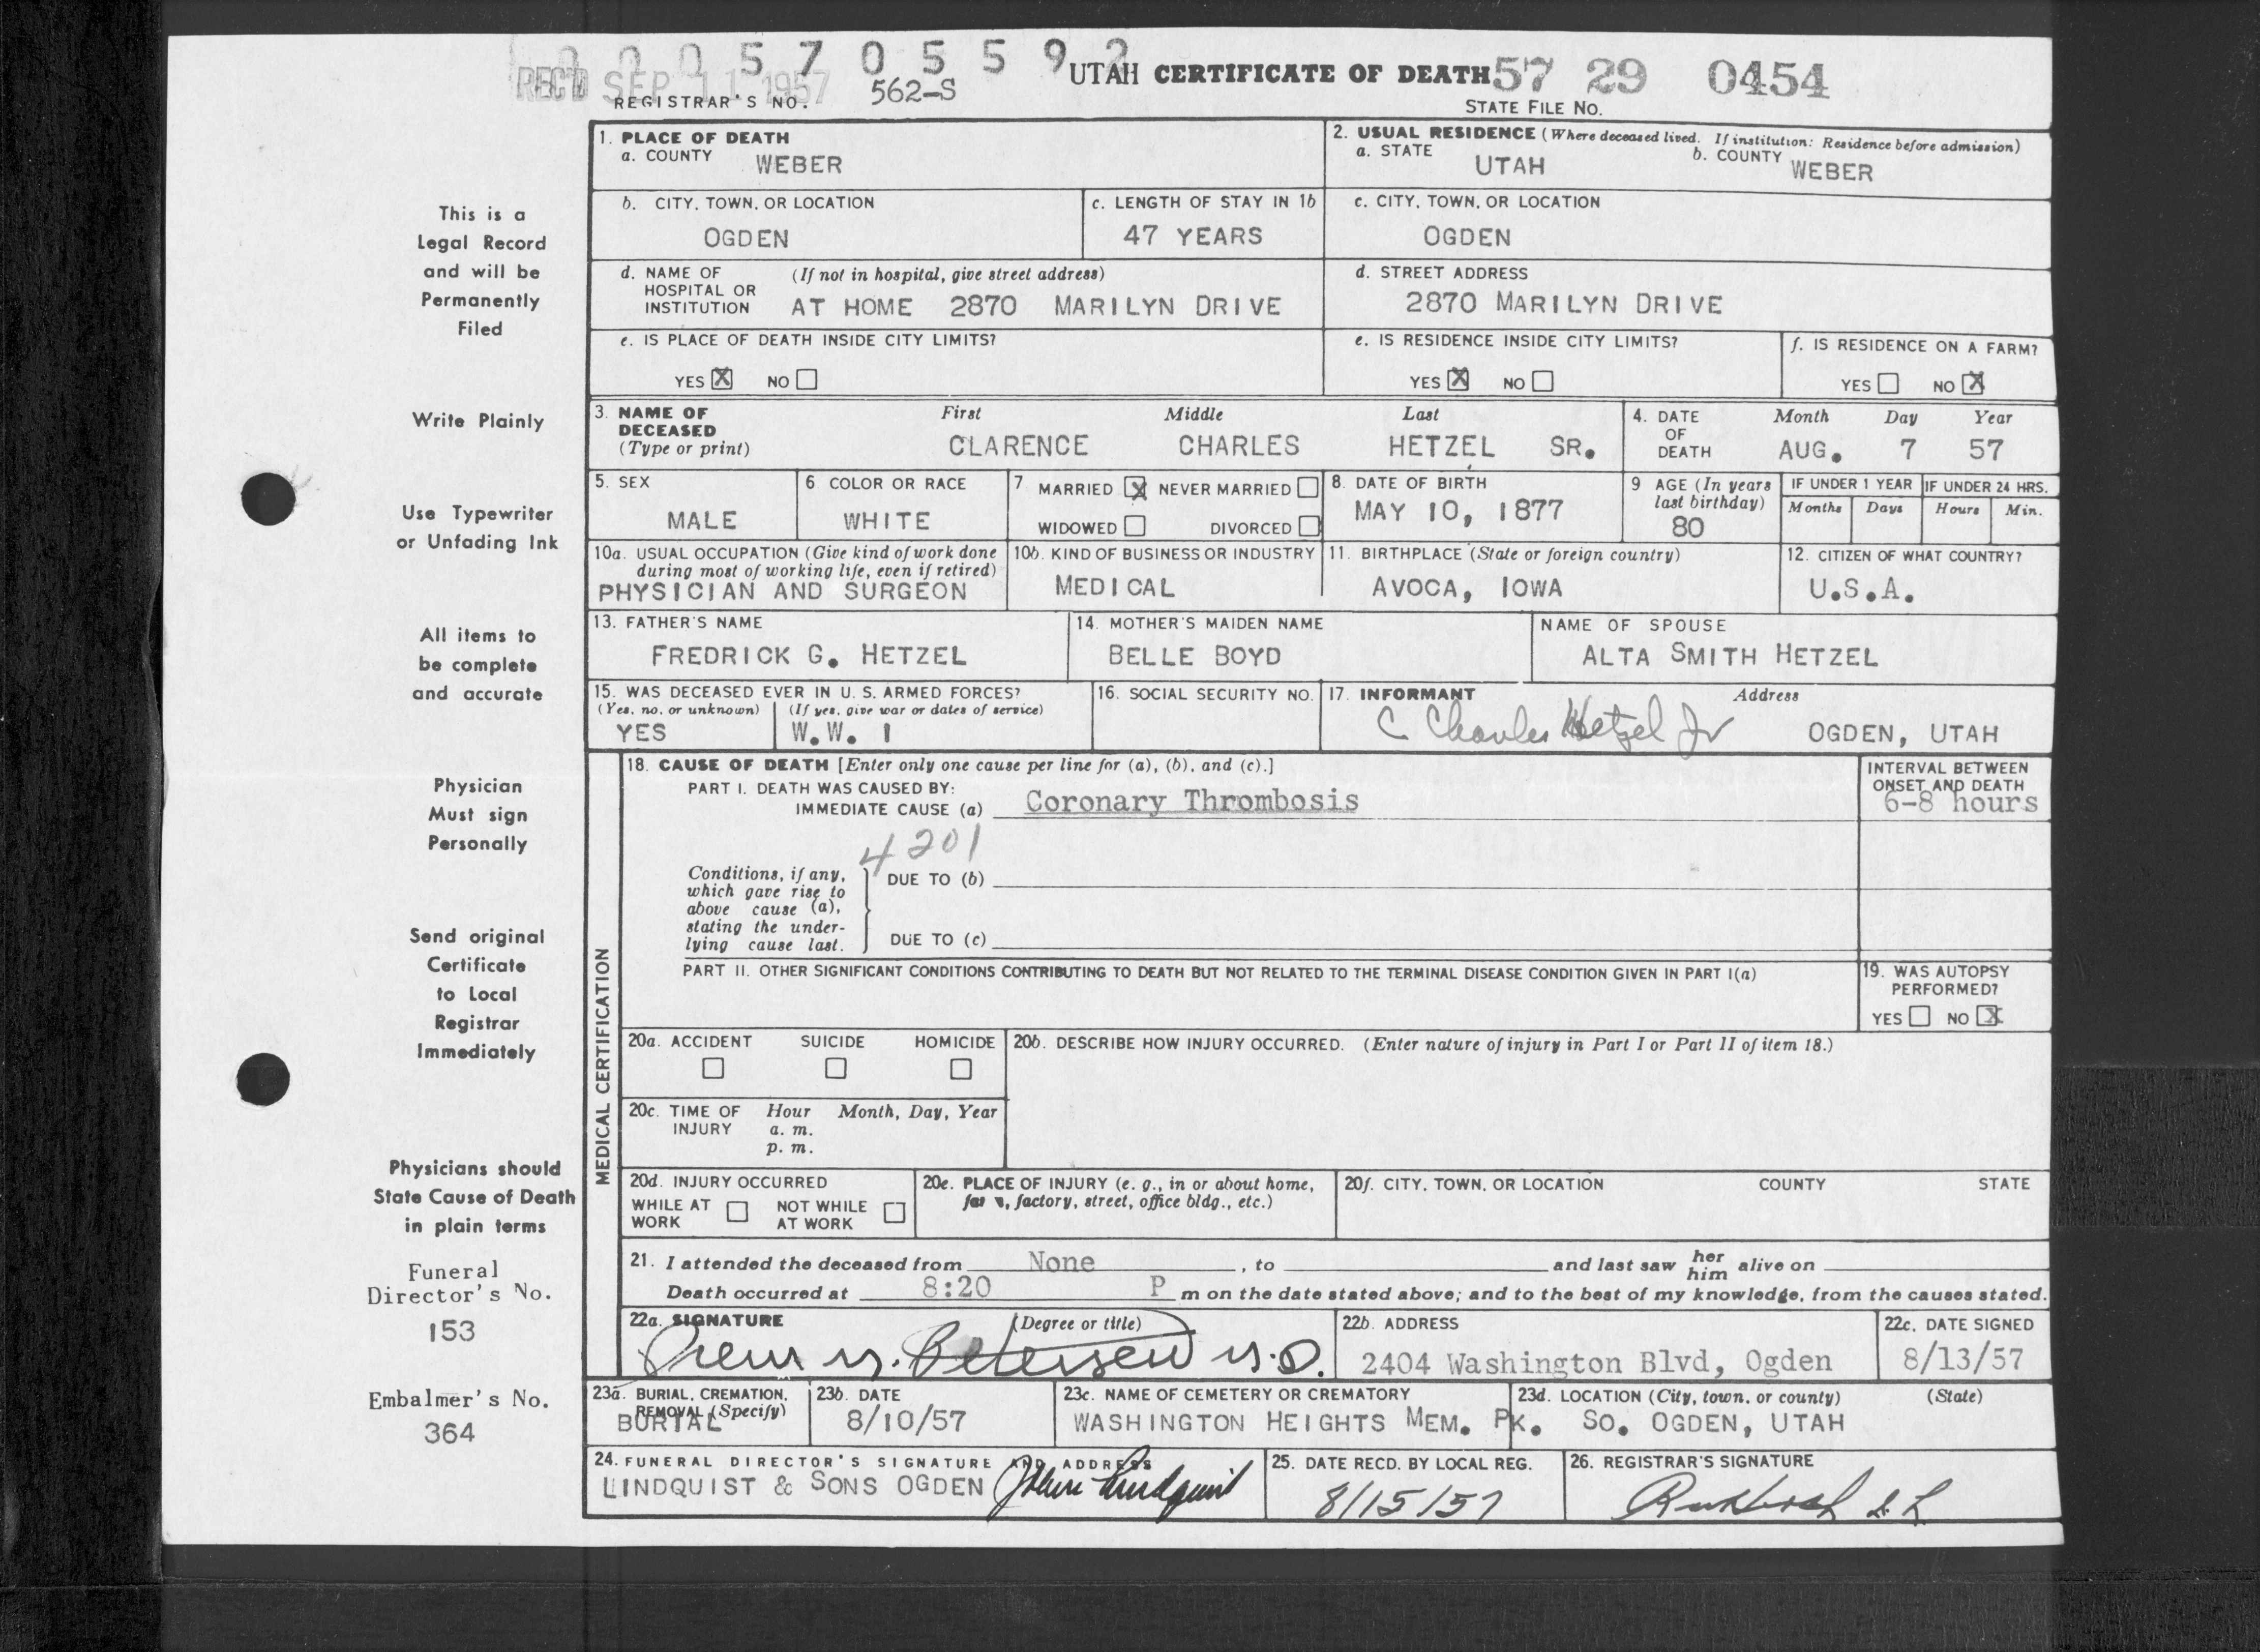 0 0 0 5 7 0 5 5 9 2
REC'D SEP 11 1957
REGISTRAR'S NO. 562-S
UTAH CERTIFICATE OF DEATH 57 29 0454
STATE FILE NO.
This is a
Legal Record
and will be
Permanently
Filed
Write Plainly
Use Typewriter
or Unfading Ink
All items to
be complete
and accurate
Physician
Must sign
Personally
Send original
Certificate
to Local
Registrar
Immediately
Physicians should
State Cause of Death
in plain terms
Funeral
Director's No.
153
Embalmer's No.
364
1. PLACE OF DEATH
a. COUNTY WEBER
2. USUAL RESIDENCE (Where deceased lived. If institution: Residence before admission)
a. STATE UTAH b. COUNTY WEBER
b. CITY, TOWN, OR LOCATION
OGDEN
c. LENGTH OF STAY IN 1b
47 YEARS
c. CITY, TOWN, OR LOCATION
OGDEN
d. NAME OF (If not in hospital, give street address)
HOSPITAL OR
INSTITUTION AT HOME 2870 MARILYN DRIVE
d. STREET ADDRESS
2870 MARILYN DRIVE
e. IS PLACE OF DEATH INSIDE CITY LIMITS?
YES X NO
e. IS RESIDENCE INSIDE CITY LIMITS?
YES X NO
f. IS RESIDENCE ON A FARM?
YES NO X
3. NAME OF DECEASED (Type or print)
First Middle Last
CLARENCE CHARLES HETZEL SR.
4. DATE OF DEATH
Month Day Year
AUG. 7 57
5. SEX
MALE
6 COLOR OR RACE
WHITE
7 MARRIED X NEVER MARRIED
WIDOWED DIVORCED
8. DATE OF BIRTH
MAY 10, 1877
9 AGE (In years
last birthday)
80
IF UNDER 1 YEAR
Months Days
IF UNDER 24 HRS.
Hours Min.
10a. USUAL OCCUPATION (Give kind of work done
during most of working life, even if retired)
PHYSICIAN AND SURGEON
10b. KIND OF BUSINESS OR INDUSTRY
MEDICAL
11. BIRTHPLACE (State or foreign country)
AVOCA, IOWA
12. CITIZEN OF WHAT COUNTRY?
U.S.A.
13. FATHER'S NAME
FREDRICK G. HETZEL
14. MOTHER'S MAIDEN NAME
BELLE BOYD
NAME OF SPOUSE
ALTA SMITH HETZEL
15. WAS DECEASED EVER IN U. S. ARMED FORCES?
(Yes, no, or unknown) (If yes, give war or dates of service)
YES W.W. I
16. SOCIAL SECURITY NO.
17. INFORMANT Address
C Charles Hetzel Jr OGDEN, UTAH
MEDICAL CERTIFICATION
18. CAUSE OF DEATH [Enter only one cause per line for (a), (b), and (c).]
PART I. DEATH WAS CAUSED BY:
IMMEDIATE CAUSE (a) Coronary Thrombosis
INTERVAL BETWEEN
ONSET AND DEATH
6-8 hours
4201
Conditions, if any,
which gave rise to
above cause (a),
stating the under-
lying cause last.
DUE TO (b)
DUE TO (c)
PART II. OTHER SIGNIFICANT CONDITIONS CONTRIBUTING TO DEATH BUT NOT RELATED TO THE TERMINAL DISEASE CONDITION GIVEN IN PART I(a)
19. WAS AUTOPSY
PERFORMED?
YES NO X
20a. ACCIDENT SUICIDE HOMICIDE
20b. DESCRIBE HOW INJURY OCCURRED. (Enter nature of injury in Part I or Part II of item 18.)
20c. TIME OF INJURY
Hour Month, Day, Year
a. m.
p. m.
20d. INJURY OCCURRED
WHILE AT WORK NOT WHILE AT WORK
20e. PLACE OF INJURY (e. g., in or about home,
factory, street, office bldg., etc.)
20f. CITY, TOWN, OR LOCATION COUNTY STATE
21. I attended the deceased from None , to and last saw her him alive on
Death occurred at 8:20 P m on the date stated above; and to the best of my knowledge, from the causes stated.
22a. SIGNATURE (Degree or title)
Petersen M.D.
22b. ADDRESS
2404 Washington Blvd, Ogden
22c. DATE SIGNED
8/13/57
23a. BURIAL, CREMATION,
REMOVAL (Specify)
BURIAL
23b. DATE
8/10/57
23c. NAME OF CEMETERY OR CREMATORY
WASHINGTON HEIGHTS MEM. PK.
23d. LOCATION (City, town, or county) (State)
SO. OGDEN, UTAH
24. FUNERAL DIRECTOR'S SIGNATURE AND ADDRESS
LINDQUIST & SONS OGDEN Lindquist
25. DATE RECD. BY LOCAL REG.
8/15/57
26. REGISTRAR'S SIGNATURE